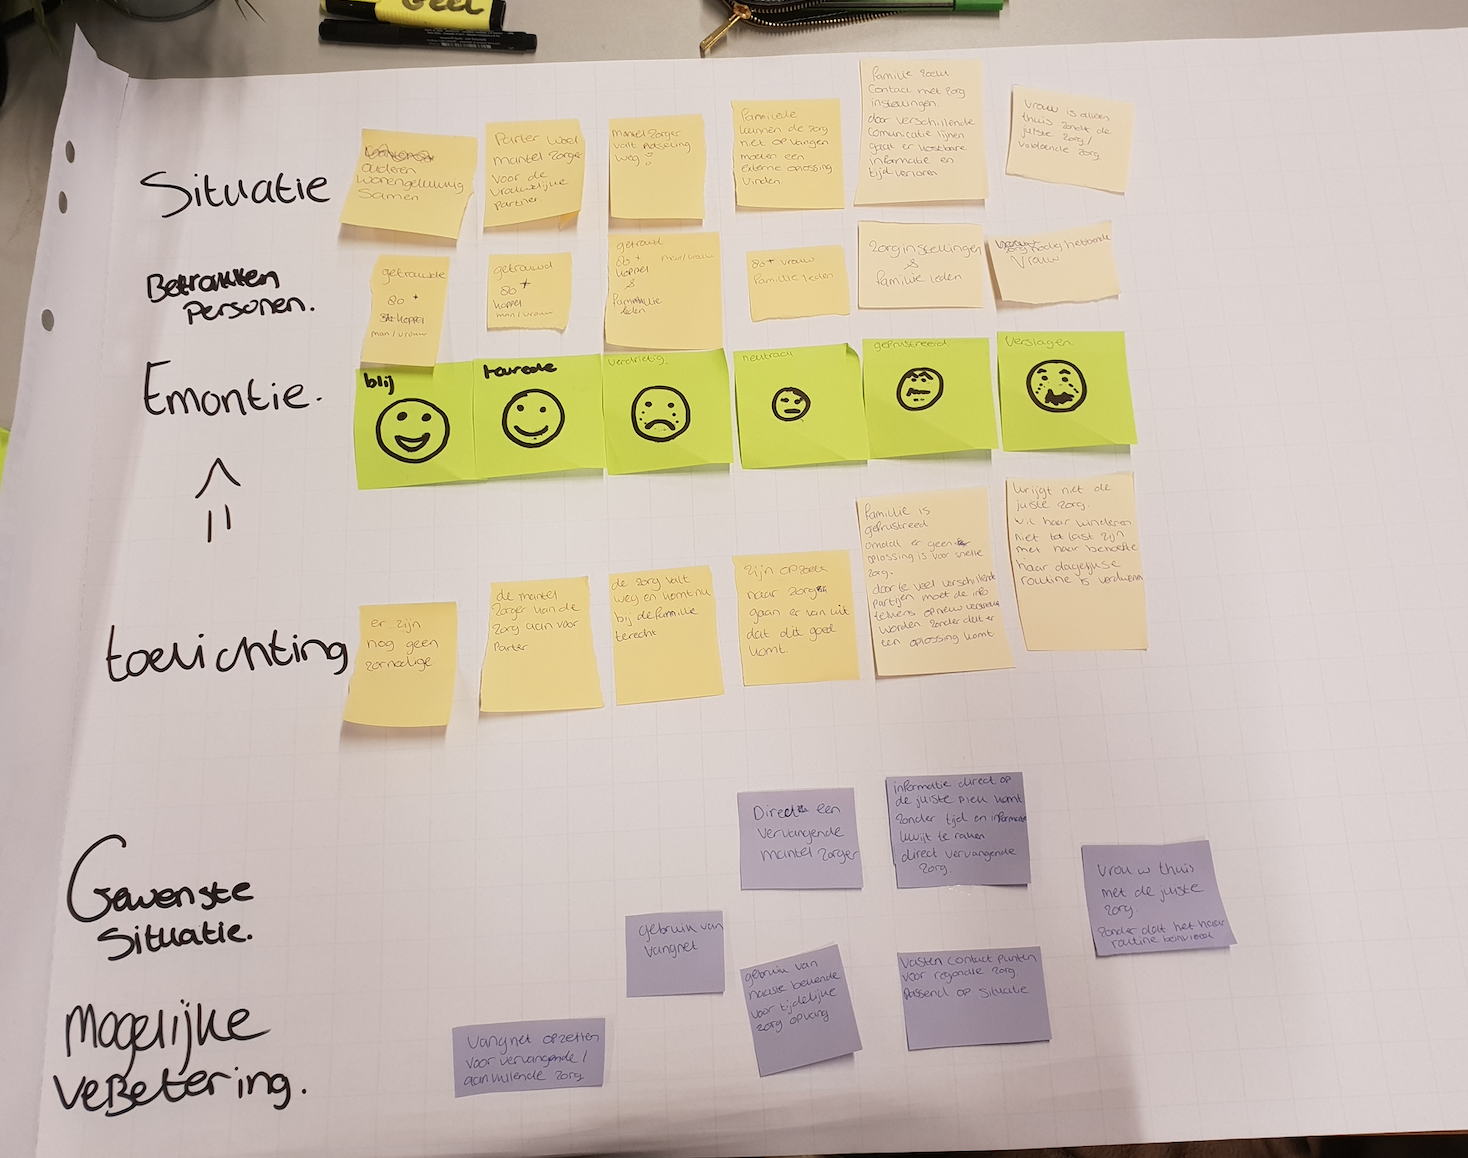 Geel
Situatie
ouderen
wonengelukkig
samen
Parter word
mantel zorger
voor de
vrouwelijke
partner
mantel zorger
valt plotseling
weg
Fammielie
kunnen de zorg
niet opvangen
moeten een
externe oplossing
vinden
Familie zoekt
Contact met zorg
instellingen.
door verschillende
Comunicatie lijnen
gaat er kostbare
informatie en
tijd verloren
vrouw is alleen
thuis zondt de
juiste zorg/
voldoende zorg
Betrokken
Personen.
getrouwde
80 +
koppel
man/vrouw
getrouwd
80 +
koppel
man/vrouw
getrouwd
80 + man/vrouw
koppel
&
Fammilie
leden
80+ vrouw
Familie leden
Zorginstellingen
&
Familie leden
zorg nodig hebbende
Vrouw
Emontie.
blij
tevrede
verdrietig
neutraal
gefrustreerd
verslagen
toelichting
er zijn
nog geen
zornodige
de mantel
Zorger kan de
zorg aan voor
Parter
de zorg valt
weg en komt nu
bij de familie
terecht
zijn opzoek
naar zorg
gaan er van uit
dat dit goed
komt.
Familie is
gefrustreed
omdat er geen
oplossing is voor snelle
zorg.
door te veel verschillende
partijen moet de info
telkens opnieuw
worden zonder dat er
een oplossing komt
krijgt niet de
juiste zorg.
wil haar kinderen
niet tot last zijn
met haar behoefte
haar dagelijkse
routine is verdwenen
Gewenste
Situatie.
Direct een
vervangende
mantel zorger
informatie direct op
de juiste plek komt
zonder tijd en informatie
kwijt te raken
direct vervangende
zorg.
Vrouw thuis
met de juiste
zorg.
Zonder dat het haar
routine beinvloed
gebruik van
vangnet
Mogelijke
VeBetering.
Vangnet opzetten
voor vervangende/
aanvullende zorg
gebruik van
naaste bekende
voor tijdelijke
zorg opvang
Vasten contact punten
voor regionale zorg
Passend op situatie